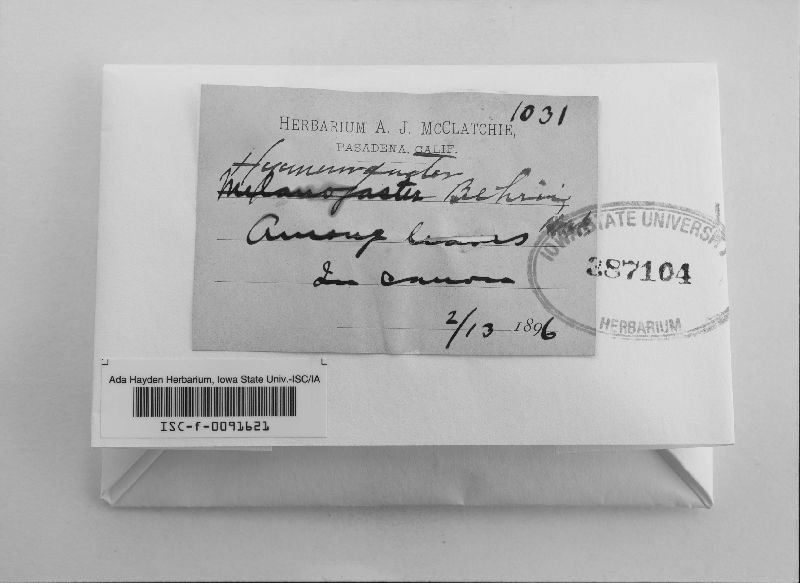 1031
HERBARIUM A. J. McCLATCHIE,
PASADENA, CALIF.
Hymenogaster
Melanogaster Behrii
Among leaves
In canon
2/13 1896
IOWA STATE UNIVERSITY
387104
HERBARIUM
Ada Hayden Herbarium, Iowa State Univ.-ISC/IA
ISC-f-0091621